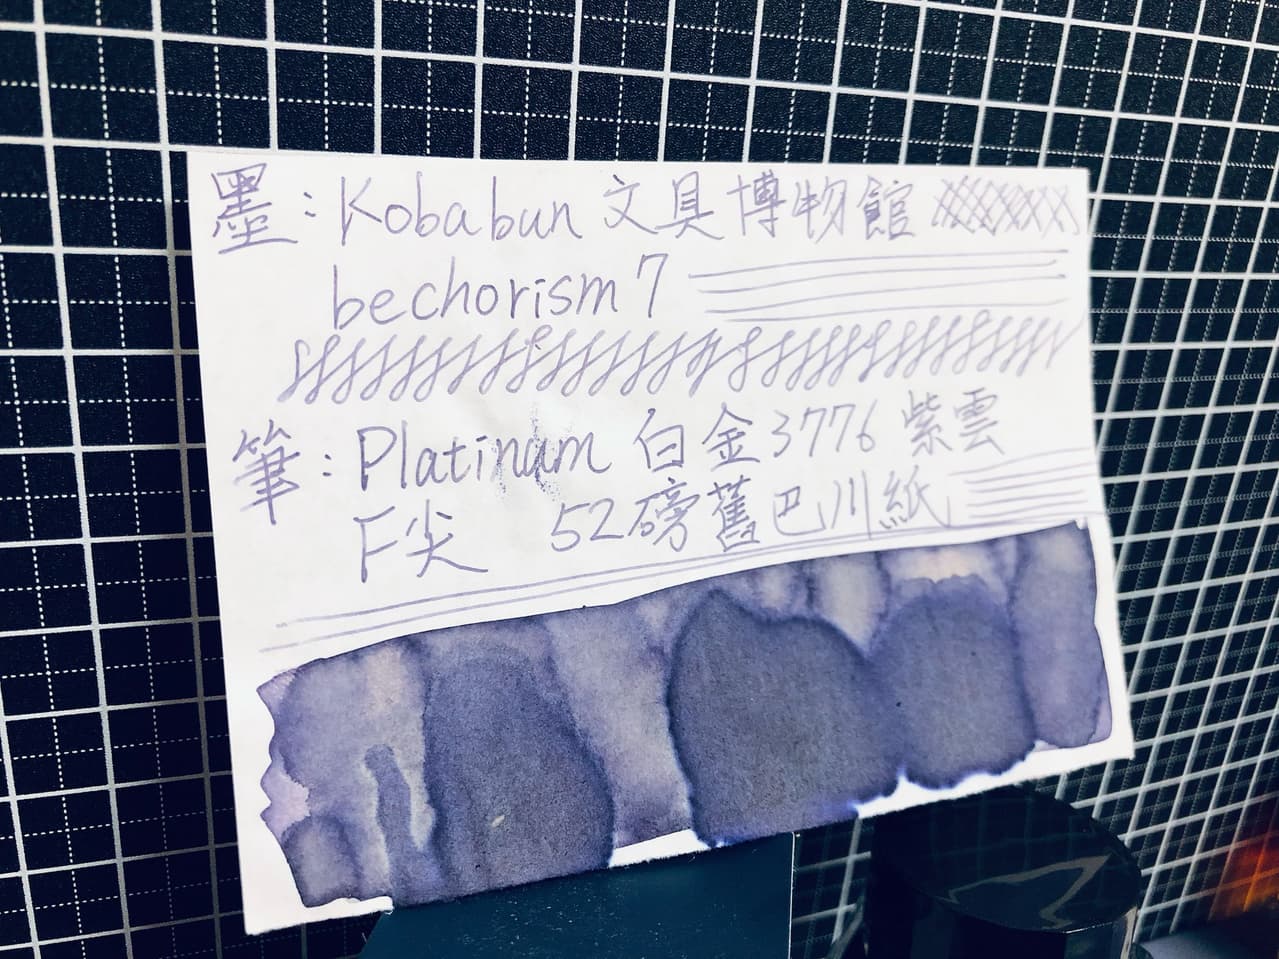 墨：Kobabun 文具博物館
bechorism 7
筆：Platinum 白金3776 紫雲
F尖 52磅舊巴川紙